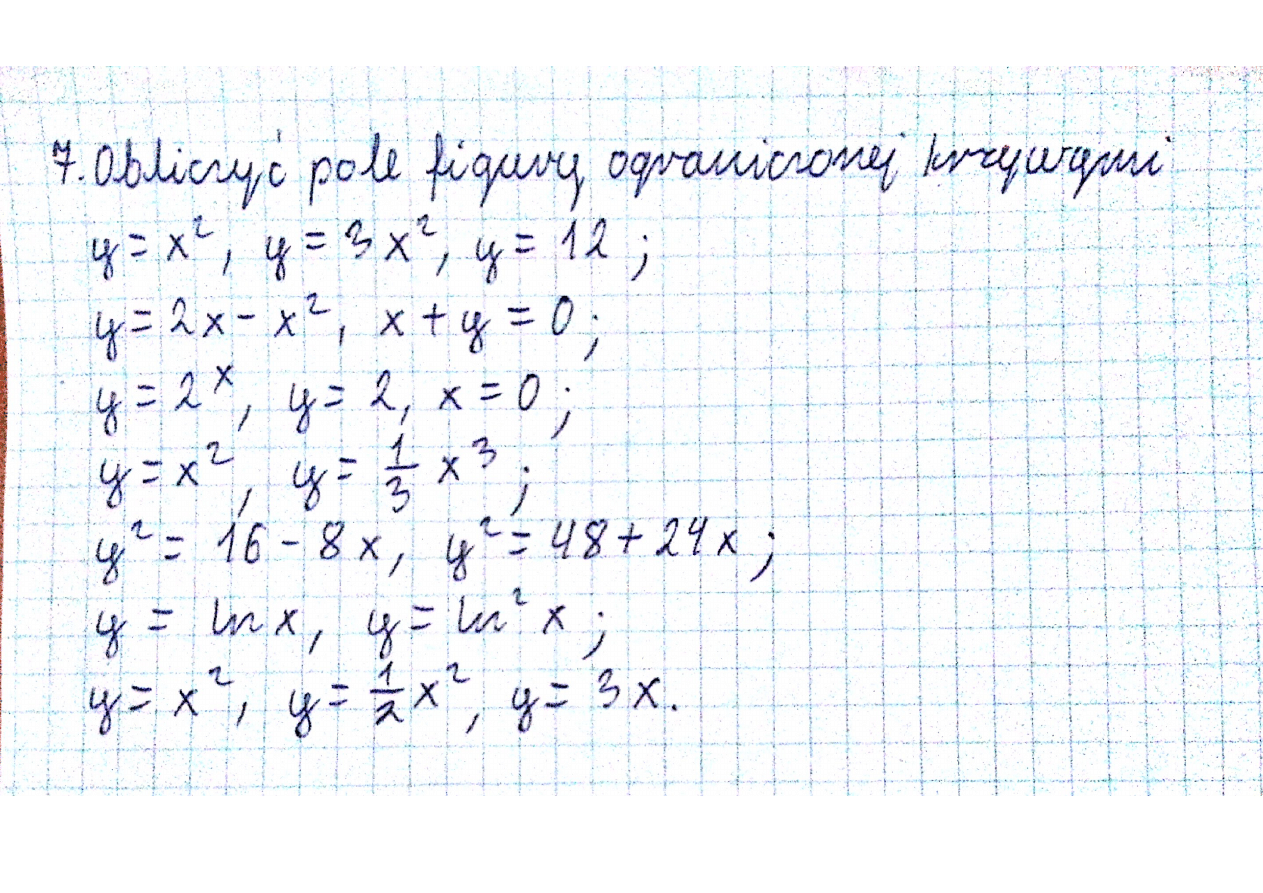 7. Obliczyć pole figury ograniczonej krzywymi
y = x², y = 3x², y = 12 ;
y = 2x - x², x + y = 0 ;
y = 2ˣ, y = 2, x = 0 ;
y = x², y = 1/3 x³ ;
y² = 16 - 8x, y² = 48 + 24x ;
y = ln x, y = ln² x ;
y = x², y = 1/2 x², y = 3x.